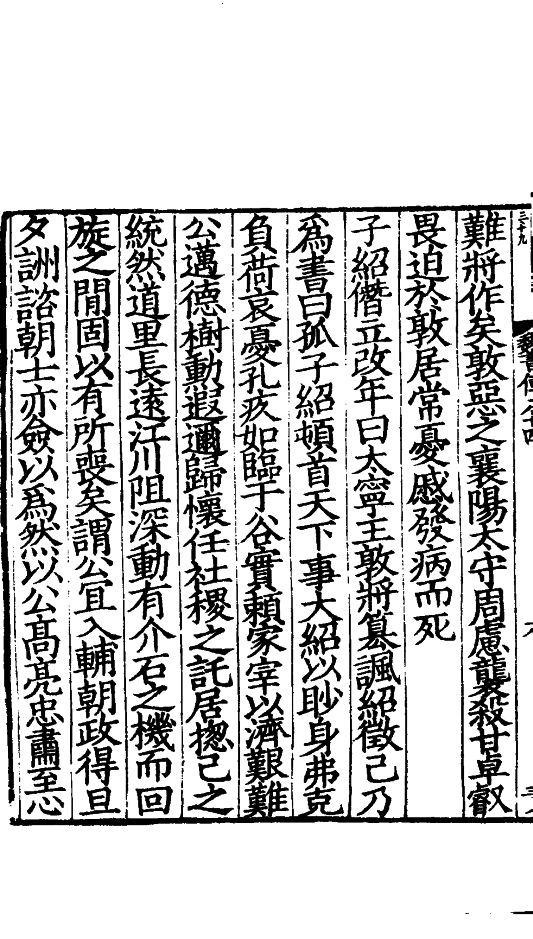 難將作矣敦惡之襄陽太守周慮襲殺甘卓叡
畏迫於敦居常憂慼發病而死
子紹僭立改年曰太寧王敦將篡諷紹徵己乃
爲書曰孤子紹頓首天下事大紹以眇身弗克
負荷哀憂孔疚如臨于谷實賴冢宰以濟艱難
公邁德樹勳遐邇歸懷任社稷之託居揔己之
統然道里長遠江川阻深動有介石之機而回
旋之閒固以有所喪矣謂公宜入輔朝政得旦
夕詶諮朝士亦僉以爲然以公高亮忠肅至心